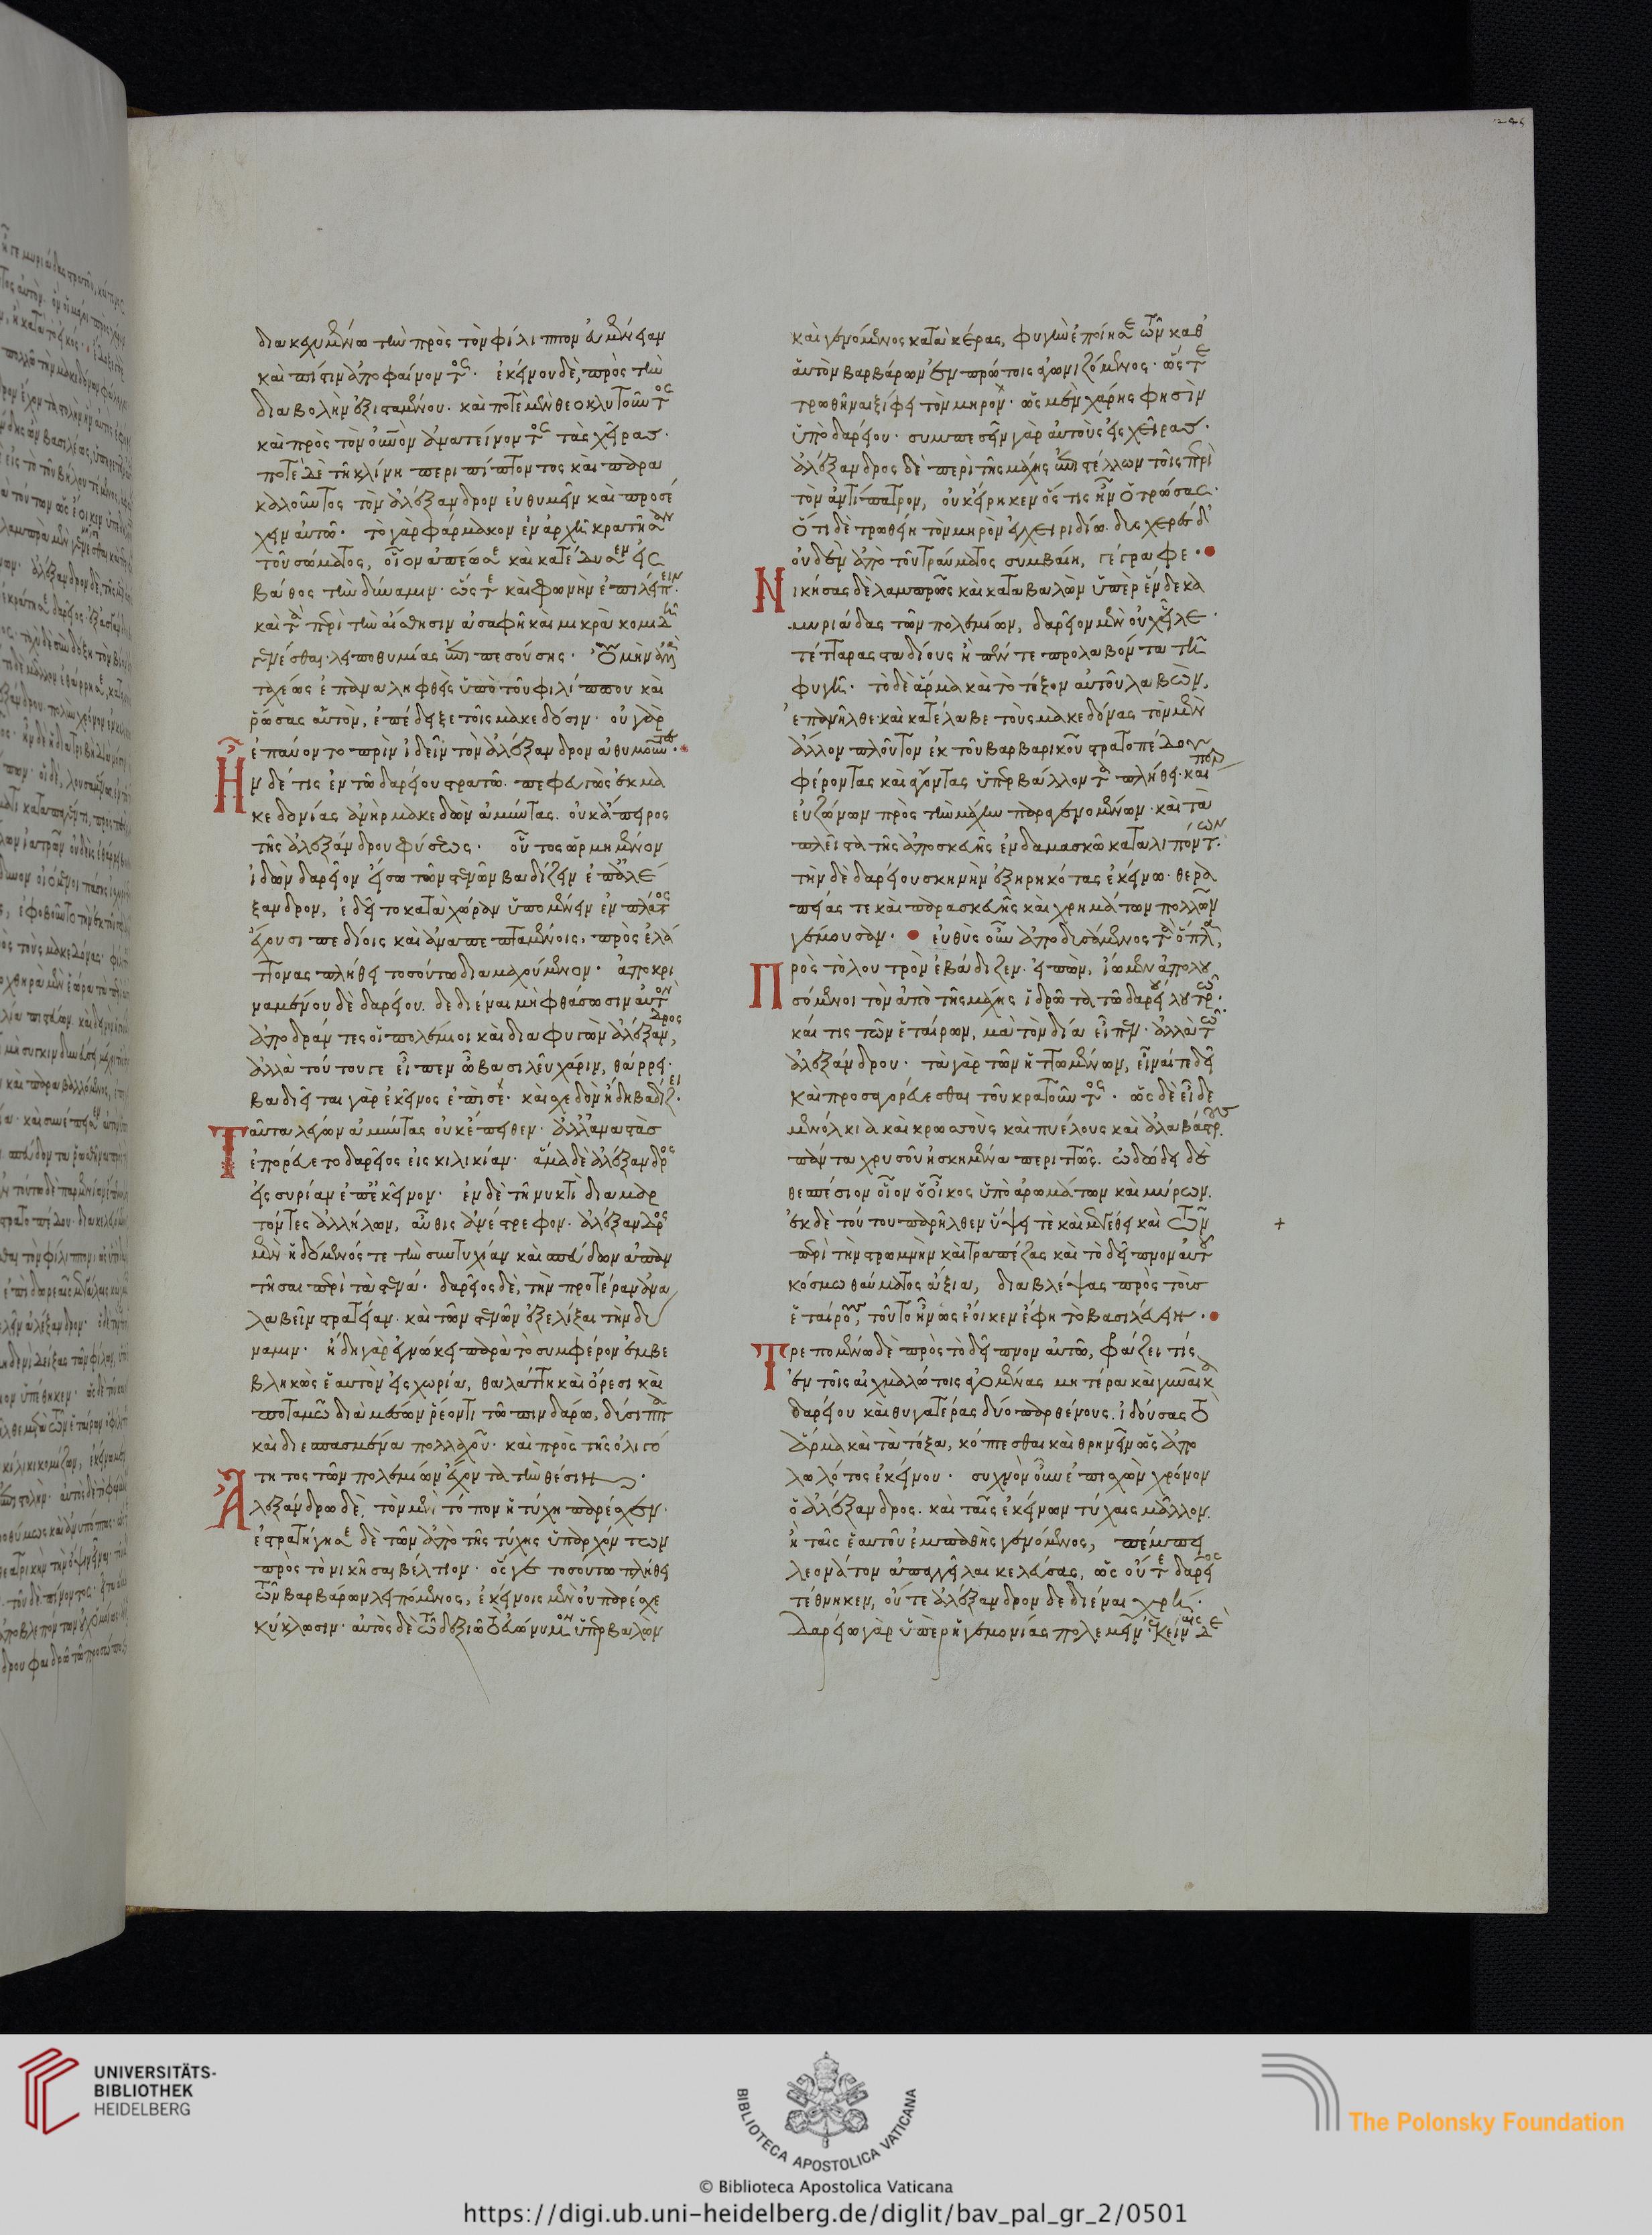 διακεχυμένω τὴν πρὸς τὸν φίλιππον εὐμένειαν
καὶ πίστιν ἀποφαίνοντος. ἐκείνου δὲ, πρὸς τὴν
διαβολὴν ἐξισταμένου. καὶ ποτὲ μὲν θεοκλυτοῦντος
καὶ πρὸς τὸν οὐρανὸν ἀνατείνοντος τὰς χεῖρας.
ποτὲ δὲ τῆ κλίνη περιπίπτοντος καὶ παρα
καλοῦντος τὸν ἀλέξανδρον εὐθυμεῖν καὶ προσέ
χειν αὐτῶ. τὸ γὰρ φάρμακον ἐν ἀρχῆ κρατῆσαν
τοῦ σώματος, οἷον ἀπέωσε καὶ κατέδυσεν εἰς
βάθος τὴν δύναμιν. ὥστε καὶ φωνὴν ἐπιλείπειν.
καὶ τὰ περὶ τὴν αἴσθησιν ἀσαφῆ καὶ μικρὰ κομιδῆ
γενέσθαι. λειποθυμίας ἐπιπεσούσης. οὐ μὴν ἀλλὰ
ταχέως ἐπαναληφθεὶς ὑπὸ τοῦ φιλίππου καὶ
ῥώσας αὑτὸν, ἐπέδειξε τοῖς μακεδόσιν. οὐ γὰρ
ἐπαύοντο πρὶν ἰδεῖν τὸν ἀλέξανδρον ἀθυμοῦντες.
Ἦν δέ τις ἐν τῶ δαρείου στρατῶ. πεφευγὼς ἐκ μα
κεδονίας ἀνὴρ μακεδὼν ἀμύντας. οὐκ ἄπειρος
τῆς ἀλεξάνδρου φύσεως. οὗτος ὡρμημένον
ἰδὼν δαρεῖον εἴσω τῶν στενῶν βαδίζειν ἐπ' ἀλέ
ξανδρον, ἐδεῖτο κατὰ χώραν ὑπομένειν ἐν πλάτος
ἔχουσι πεδίοις καὶ ἀναπεπταμένοις, πρὸς ἐλά
ττονας πλήθει τοσούτω διαμαχούμενον. ἀποκρι
ναμένου δὲ δαρείου. δεδιέναι μὴ φθάσωσιν αὐτὸν
ἀποδράντες οἱ πολέμιοι καὶ διαφυγὼν ἀλέξανδρος,
ἀλλὰ τούτου γε εἶπεν ὦ βασιλεῦ χάριν, θάρρει.
βαδιεῖται γὰρ ἐκεῖνος ἐπὶ σέ. καὶ σχεδὸν ἤδη βαδίζει.
Ταῦτα λέγων ἀμύντας οὐκ ἔπειθεν. ἀλλ' ἀναστὰς
ἐπορεύετο δαρεῖος εἰς κιλικίαν. ἅμα δὲ ἀλέξανδρος
εἰς συρίαν ἐπ' ἐκεῖνον. ἐν δὲ τῆ νυκτὶ διαμαρ
τόντες ἀλλήλων, αὖθις ἀνέστρεφον. ἀλέξανδρος
μὲν ἡδόμενός τε τὴν συντυχίαν καὶ σπεύδων ἀπαν
τῆσαι περὶ τὰ στενά. δαρεῖος δὲ, τὴν προτέραν ἀνα
λαβεῖν στρατείαν. καὶ τῶν στενῶν ἐξελίξαι τὴν δύ
ναμιν. ἤδη γὰρ ἐγνώκει παρὰ τὸ συμφέρον ἐμβε
βληκὼς ἑαυτὸν εἰς χωρία, θαλάττη καὶ ὄρεσι καὶ
ποταμῶ διὰ μέσων ῥέοντι τῶ πινδάρω, δύσιππα
καὶ διεσπασμένα πολλαχοῦ. καὶ πρὸς τῆς ὀλιγό
τητος τῶν πολεμίων ἔχοντα τὴν θέσιν.
Ἀλεξάνδρω δὲ, τὸν μὲν τόπον ἡ τύχη παρέσχεν.
ἐστρατήγησε δὲ τῶν ἀπὸ τῆς τύχης ὑπαρχόντων
πρὸς τὸ νικῆσαι βέλτιον. ὅς γε τοσούτω πλήθει
τῶν βαρβάρων λειπόμενος, ἐκείνοις μὲν οὐ παρέσχε
κύκλωσιν. αὐτὸς δὲ τῶ δεξιῶ τὸ εὐώνυμον ὑπερβαλὼν
καὶ γενόμενος κατὰ κέρας, φυγὴν ἐποίησε τῶν καθ'
αὑτὸν βαρβάρων ἐν πρώτοις ἀγωνιζόμενος. ὥστε
τρωθῆναι ξίφει τὸν μηρόν. ὡς μὲν χάρης φησὶν
ὑπὸ δαρείου. συμπεσεῖν γὰρ αὐτοὺς εἰς χεῖρας.
ἀλέξανδρος δὲ περὶ τῆς μάχης ἐπιστέλλων τοῖς περὶ
τὸν ἀντίπατρον, οὐκ εἴρηκεν ὅς τις ἦν ὁ τρώσας.
ὅτι δὲ τρωθείη τὸν μηρὸν ἐγχειριδίω. δυσχερὲς δ'
οὐδὲν ἀπὸ τοῦ τραύματος συμβαίη, γέγραφε.
Νικήσας δὲ λαμπρῶς καὶ καταβαλὼν ὑπὲρ ἕνδεκα
μυριάδας τῶν πολεμίων, δαρεῖον μὲν οὐχ εἷλε
τέτταρας σταδίους ἢ πέντε προλαβόντα τῆ
φυγῆ. τὸ δὲ ἅρμα καὶ τὸ τόξον αὐτοῦ λαβὼν,
ἐπανῆλθε. καὶ κατέλαβε τοὺς μακεδόνας τὸν μὲν
ἄλλον πλοῦτον ἐκ τοῦ βαρβαρικοῦ στρατοπέδου
φέροντας καὶ ἄγοντας ὑπερβάλλοντα πλήθει. καίπερ
εὐζώνων πρὸς τὴν μάχην παραγενομένων. καὶ τὰ
πλεῖστα τῆς ἀποσκευῆς ἐν δαμασκῶ καταλιπόντων.
τὴν δὲ δαρείου σκηνὴν ἐξηρηκότας ἐκείνω. θερα
πείας τε καὶ παρασκευῆς καὶ χρημάτων πολλῶν
γέμουσαν. εὐθὺς οὖν ἀποδυσάμενος τὰ ὅπλα,
Πρὸς τὸ λουτρὸν ἐβάδιζεν. εἰπὼν, ἴωμεν ἀπολου
σόμενοι τὸν ἀπὸ τῆς μάχης ἱδρῶτα τῶ δαρείου λουτρῶ.
καί τις τῶν ἑταίρων, μὰ τὸν δία εἶπεν. ἀλλὰ τῶ
ἀλεξάνδρου. τὰ γὰρ τῶν ἡττωμένων, εἶναί τε δεῖ
καὶ προσαγορεύεσθαι τοῦ κρατοῦντος. ὡς δὲ εἶδε
μὲν ὅλκια καὶ κρωσσοὺς καὶ πυέλους καὶ ἀλαβάστρους
πάντα χρυσοῦ ἠσκημένα περιττῶς. ὠδώδει δὲ
θεσπέσιον οἷον ὁ οἶκος ὑπὸ ἀρωμάτων καὶ μύρων.
ἐκ δὲ τούτου παρῆλθεν ὕψει τὲ καὶ μεγέθει καὶ τῶν
περὶ τὴν στρωμνὴν καὶ τραπέζας καὶ τὸ δεῖπνον αὐτοῦ
κόσμω θαύματος ἀξία, διαβλέψας πρὸς τοὺς
ἑταίρους, τοῦτο ἦν ὡς ἔοικεν ἔφη τὸ βασιλεύειν.
Τρεπομένω δὲ πρὸς τὸ δεῖπνον αὐτῶ, φράζει τίς
ἐν τοῖς αἰχμαλώτοις ἀγομένας μητέρα καὶ γυναῖκα
δαρείου καὶ θυγατέρας δύο παρθένους. ἰδούσας τὸ
ἅρμα καὶ τὰ τόξα, κόπτεσθαι καὶ θρηνεῖν ὡς ἀπο
λωλότος ἐκείνου. συχνὸν οὖν ἐπισχὼν χρόνον
ὁ ἀλέξανδρος. καὶ ταῖς ἐκείνων τύχαις μᾶλλον
ἢ ταῖς ἑαυτοῦ ἐμπαθὴς γενόμενος, πέμπει
λεονάτον ἀπαγγεῖλαι κελεύσας, ὡς οὔτε δαρεῖος
τέθνηκεν, οὔτε ἀλέξανδρον δεδιέναι χρή.
δαρείω γὰρ ὑπὲρ ἡγεμονίας πολεμεῖν. ἐκείναις δὲ
UNIVERSITÄTS-
BIBLIOTHEK
HEIDELBERG
BIBLIOTECA APOSTOLICA VATICANA
The Polonsky Foundation
© Biblioteca Apostolica Vaticana
https://digi.ub.uni-heidelberg.de/diglit/bav_pal_gr_2/0501